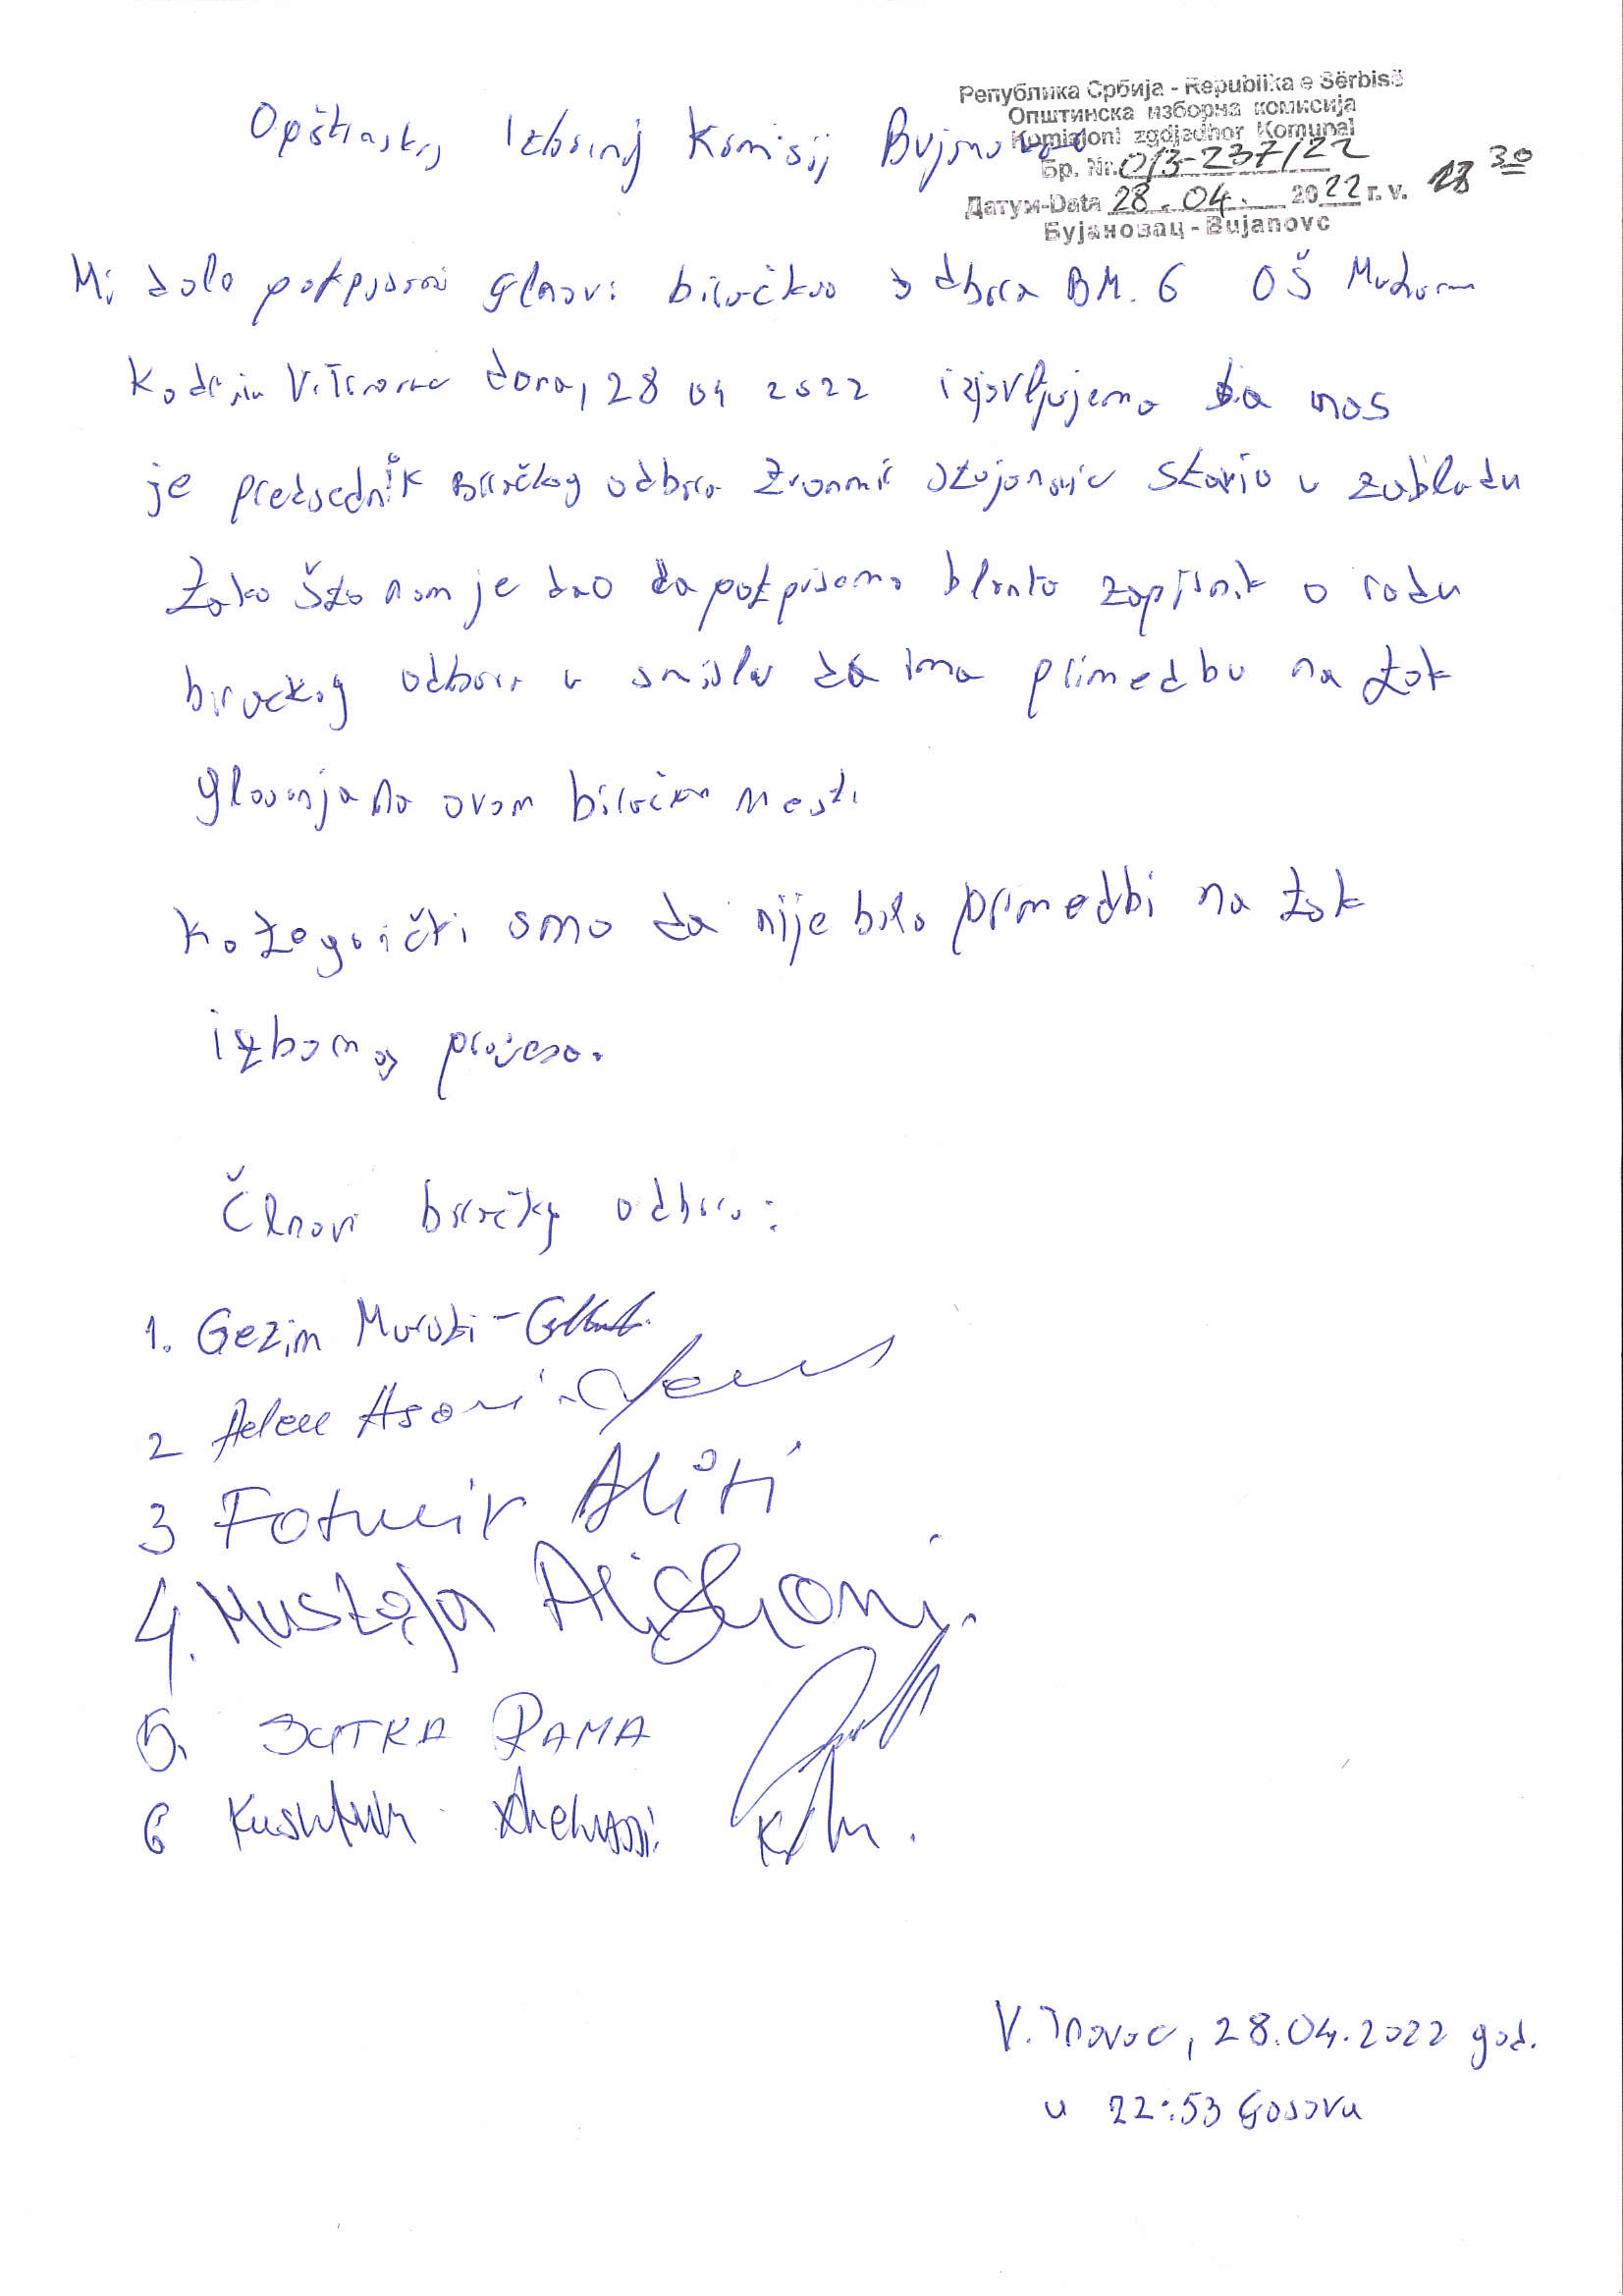 Република Србија - Republika e Sërbisë
Општинска изборна комисија
Komisioni zgdjedhor Komunal
Бр. Nr. 013-237/22
Датум-Data 28.04. 2022 г. v. 23 30
Бујановац - Bujanovc
Opštinskoj Izbornoj Komisiji Bujanovac
Mi dole potpisani članovi biračkog odbora BM. 6 OŠ Muharem
Kadriu V. Trnovac dana, 28 04 2022 izjavljujemo da nas
je predsednik Biračkog odbora Zvonmir Stojanović stavio u zabludu
tako što nam je dao da potpisemo blanko zapisnik o radu
biračkog odbora u smislu da ima primedbu na tok
glasanja na ovom biračkom mestu
Kategorički smo da nije bilo primedbi na tok
izbornog procesa.
Članovi biračkog odbora:
1. Gezim Murati -
2 Asani
3 Fatmir Aliti
4. Mustafa
5. RAMA
6
V. Trnovac, 28.04.2022 god.
u 22:53 časova